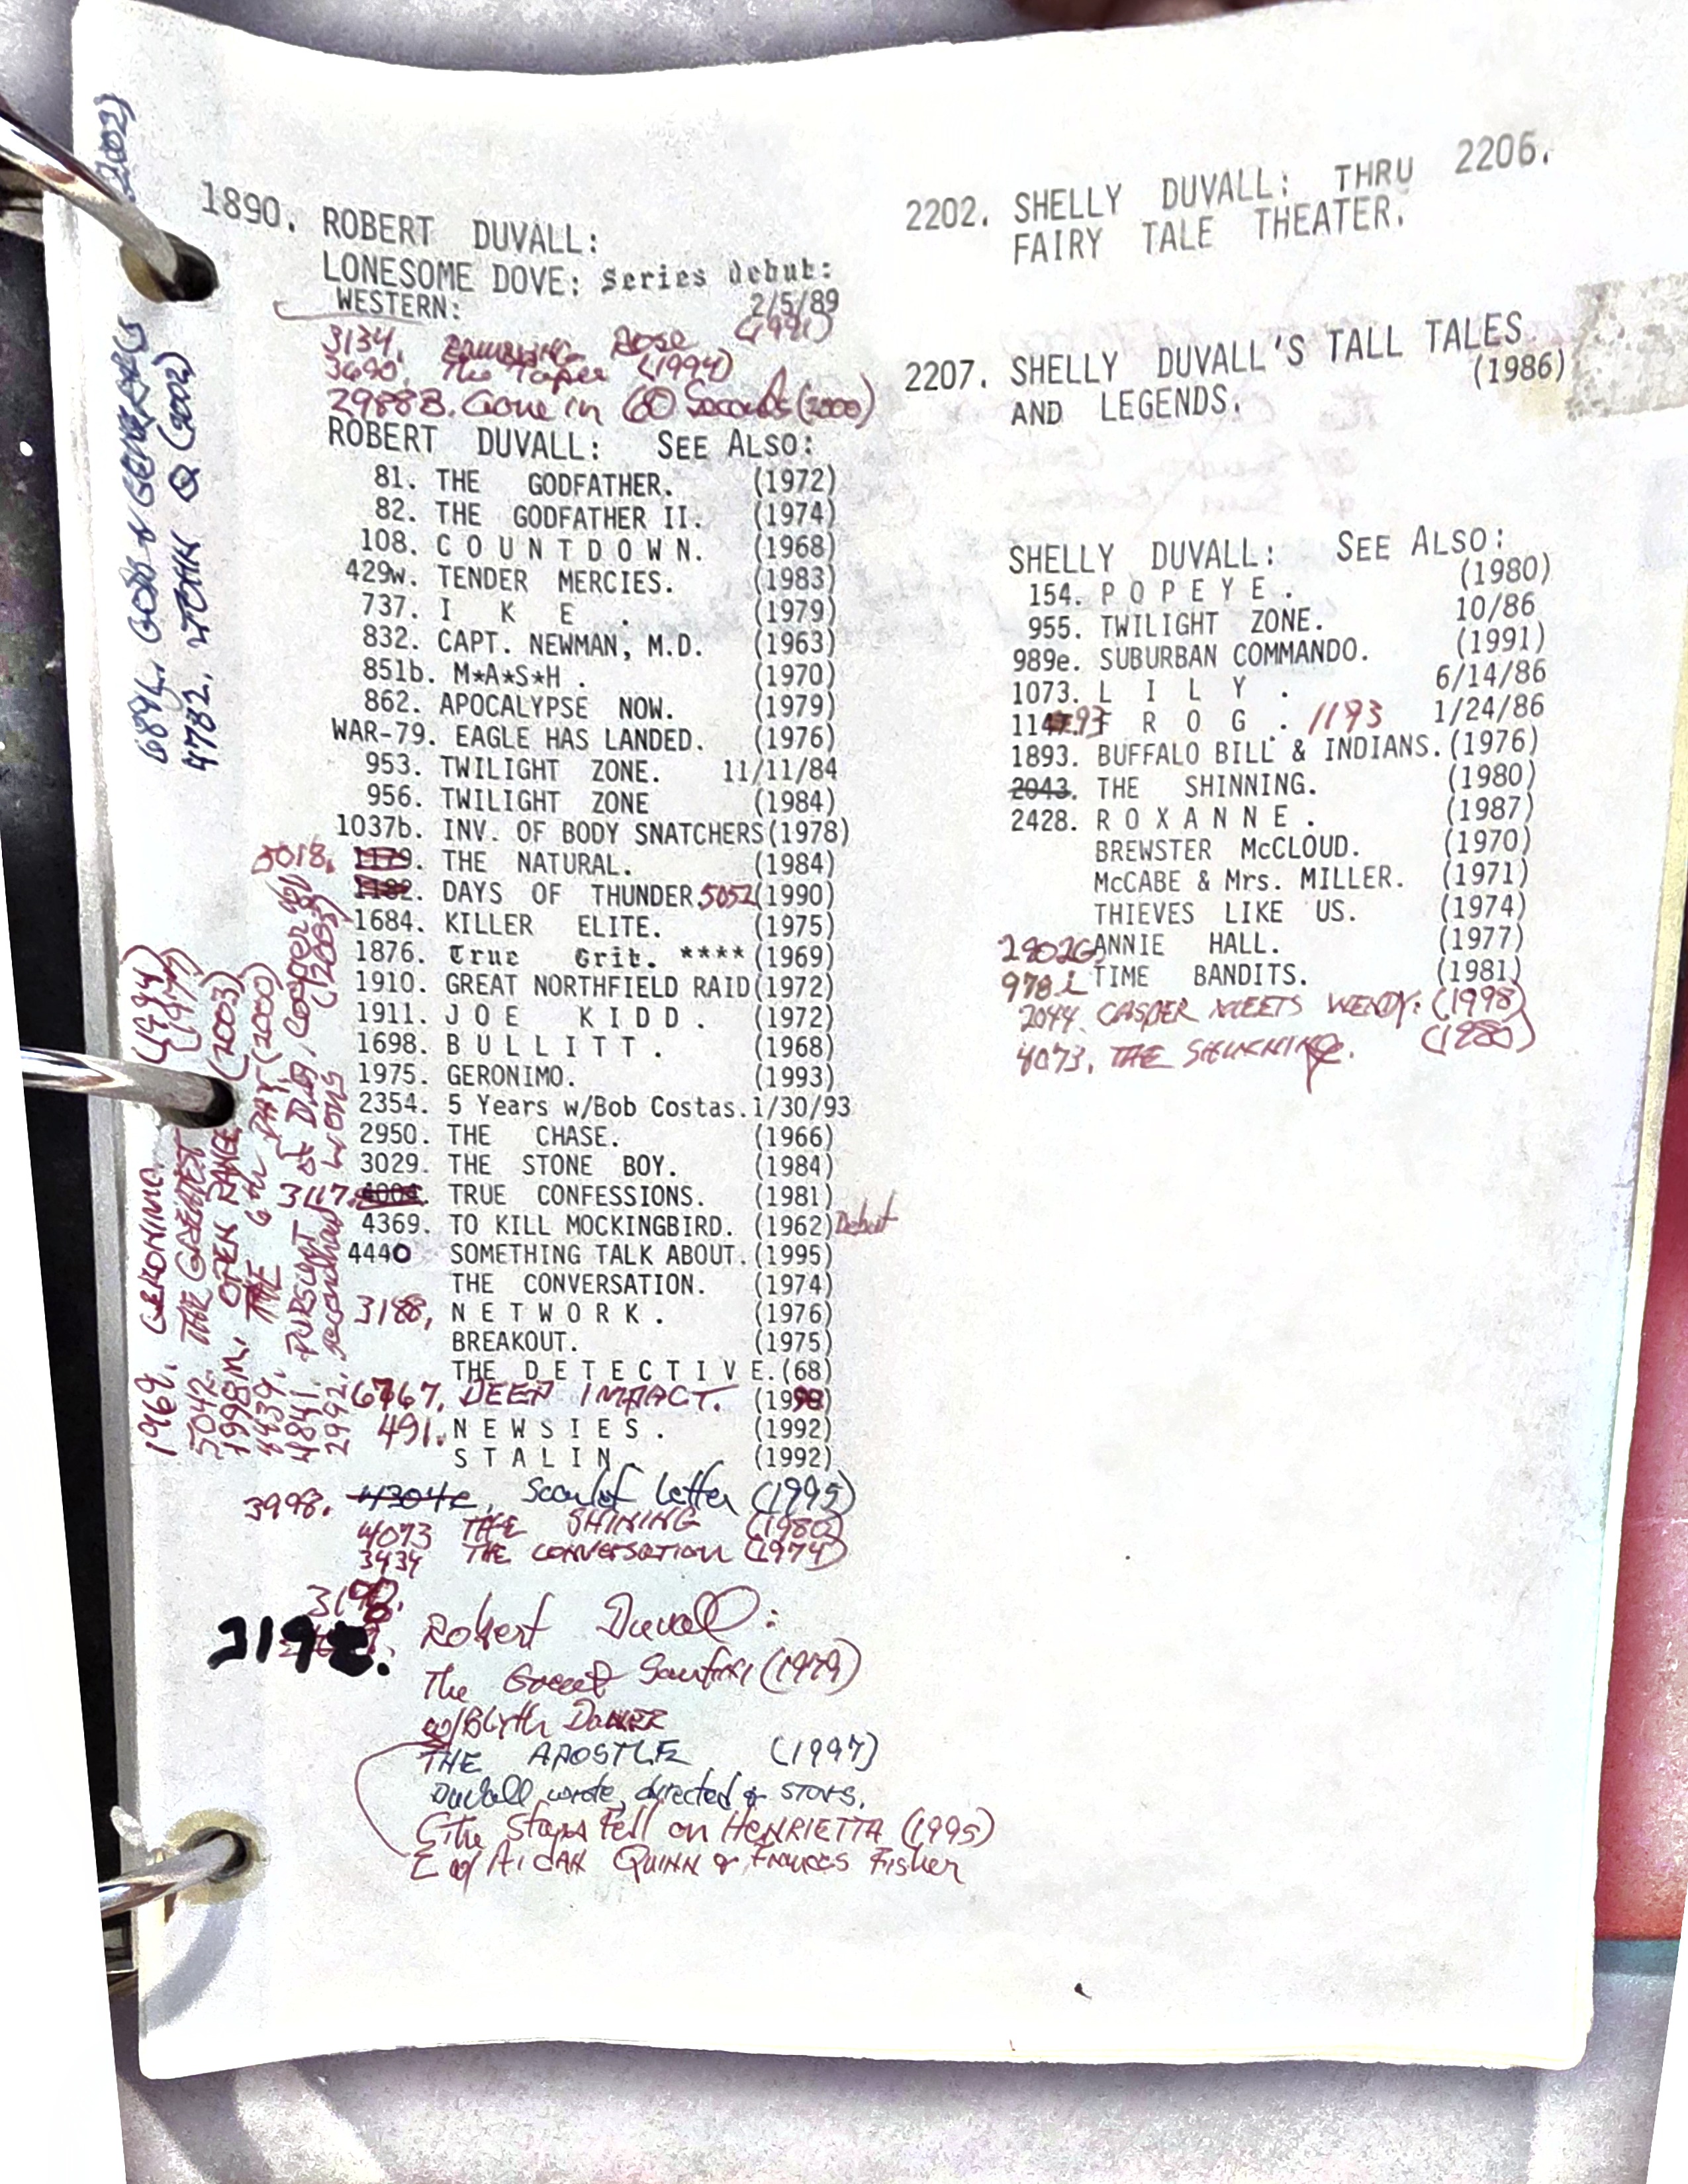 1890. ROBERT DUVALL:
LONESOME DOVE: Series debut:
WESTERN: 2/5/89
3134. RAMBLING ROSE (1991)
3690. The Paper (1994)
2988B. Gone in 60 Seconds (2000)
ROBERT DUVALL: SEE ALSO:
81. THE GODFATHER. (1972)
82. THE GODFATHER II. (1974)
108. C O U N T D O W N. (1968)
429w. TENDER MERCIES. (1983)
737. I K E . (1979)
832. CAPT. NEWMAN, M.D. (1963)
851b. M*A*S*H . (1970)
862. APOCALYPSE NOW. (1979)
WAR-79. EAGLE HAS LANDED. (1976)
953. TWILIGHT ZONE. 11/11/84
956. TWILIGHT ZONE (1984)
1037b. INV. OF BODY SNATCHERS(1978)
5018. 1179. THE NATURAL. (1984)
1182. DAYS OF THUNDER. 5052 (1990)
1684. KILLER ELITE. (1975)
1876. True Grit. **** (1969)
1910. GREAT NORTHFIELD RAID(1972)
1911. J O E K I D D . (1972)
1698. B U L L I T T . (1968)
1975. GERONIMO. (1993)
2354. 5 Years w/Bob Costas. 1/30/93
2950. THE CHASE. (1966)
3029. THE STONE BOY. (1984)
3117. 4004. TRUE CONFESSIONS. (1981)
4369. TO KILL MOCKINGBIRD. (1962) Debut
4440 SOMETHING TALK ABOUT. (1995)
THE CONVERSATION. (1974)
3188, N E T W O R K . (1976)
BREAKOUT. (1975)
THE D E T E C T I V E. (68)
6767. DEEP IMPACT. (1998)
491. N E W S I E S . (1992)
S T A L I N . (1992)
3998. 4304c, Scarlet Letter (1995)
4073 THE SHINING (1980)
3434 THE CONVERSATION (1974)
Robert Duvall:
The Great Santini (1979)
w/Blyth DANNER
THE APOSTLE (1997)
Duvall wrote, directed & STARS.
The Stars Fell on HENRIETTA (1995)
w/ AIDAN QUINN & Frances Fisher
2202. SHELLY DUVALL: THRU 2206.
FAIRY TALE THEATER.
2207. SHELLY DUVALL'S TALL TALES
AND LEGENDS. (1986)
SHELLY DUVALL: SEE ALSO:
154. P O P E Y E . (1980)
955. TWILIGHT ZONE. 10/86
989e. SUBURBAN COMMANDO. (1991)
1073. L I L Y . 6/14/86
F R O G . 1193 1/24/86
1893. BUFFALO BILL & INDIANS. (1976)
2043. THE SHINNING. (1980)
2428. R O X A N N E . (1987)
BREWSTER McCLOUD. (1970)
McCABE & Mrs. MILLER. (1971)
THIEVES LIKE US. (1974)
2902G ANNIE HALL. (1977)
978i TIME BANDITS. (1981)
2044. CASPER MEETS WENDY: (1998)
4073. THE SHINNING. (1980)
GODS & GENERALS (2002)
4782. JOHN Q (2002)
1969. GERONIMO. (1994)
5042. THE GREATEST (1977)
1998n. OPEN RANGE (2003)
4439. THE 6th DAY (2000)
4841. PURSUIT of D.B. Cooper
2992. Secondhand LIONS (2003)